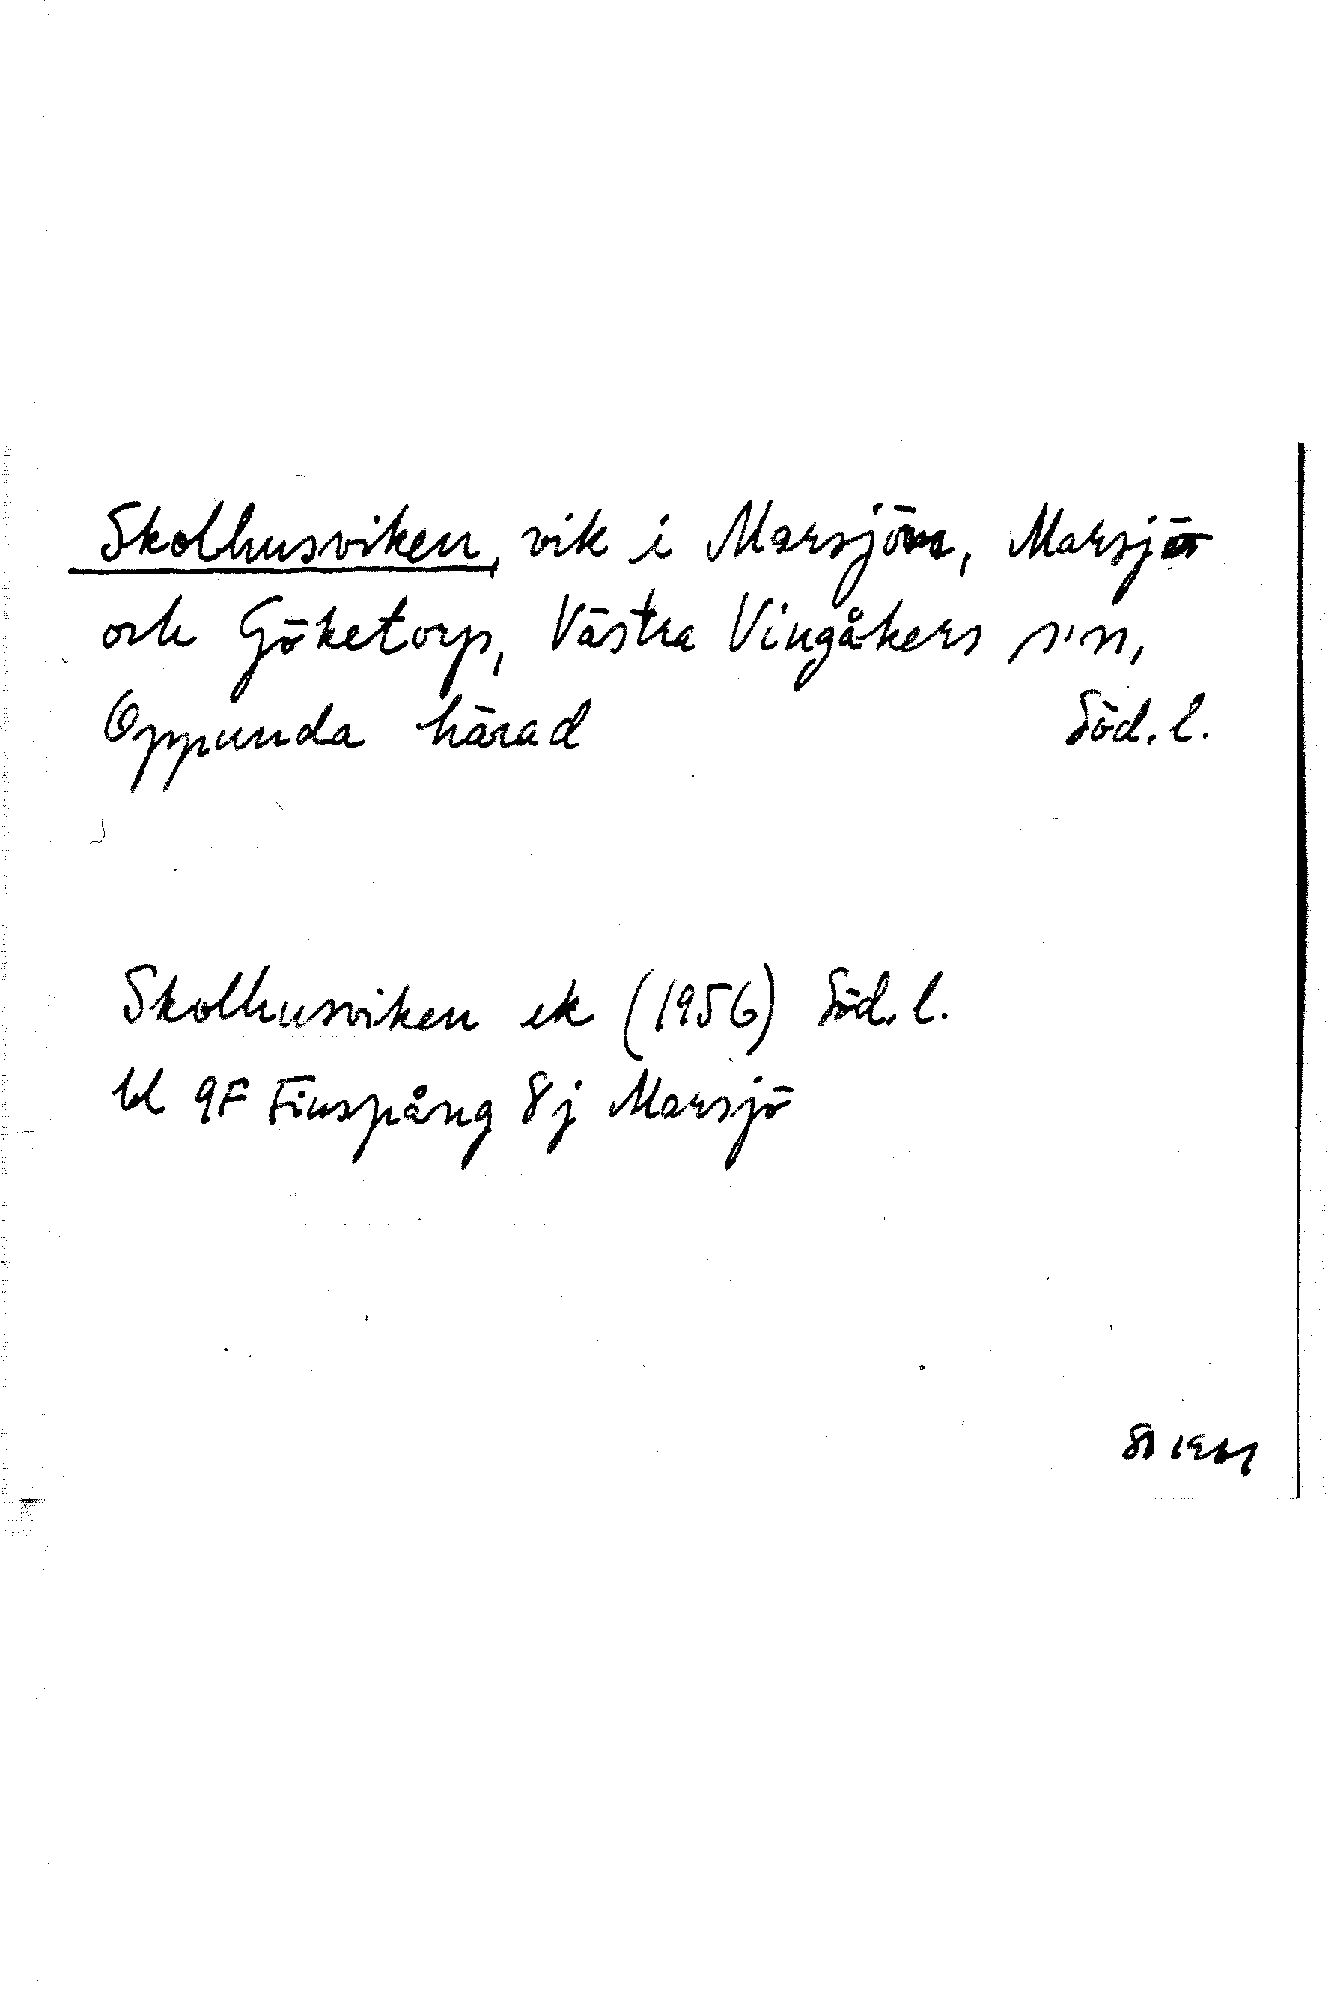 Skolhusviken, vik i Marsjön, Marsjö
och Göketorp, Västra Vingåkers sn,
Oppunda härad Söd. l.
Skolhusviken ek (1956) Söd. l.
bl 9F Finspång 8j Marsjö